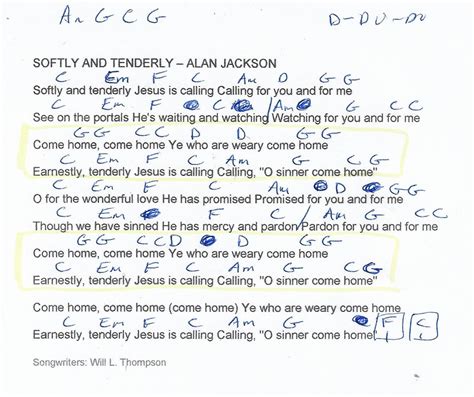 Am G C G D-DU-DU
SOFTLY AND TENDERLY – ALAN JACKSON
C Em F C Am D G G
Softly and tenderly Jesus is calling Calling for you and for me
C Em F C C/Am G C C
See on the portals He's waiting and watching Watching for you and for me
G G C C D D G G
Come home, come home Ye who are weary come home
C Em F C Am G C G
Earnestly, tenderly Jesus is calling Calling, "O sinner come home"
C Em F C Am D G G
O for the wonderful love He has promised Promised for you and for me
C Em F C/Am G C C
Though we have sinned He has mercy and pardon/Pardon for you and for me
G G C C D D G G
Come home, come home Ye who are weary come home
C Em F C Am G C G
Earnestly, tenderly Jesus is calling Calling, "O sinner come home"
Come home, come home (come home) Ye who are weary come home
C Em F C Am G C F C
Earnestly, tenderly Jesus is calling Calling, "O sinner come home"
Songwriters: Will L. Thompson